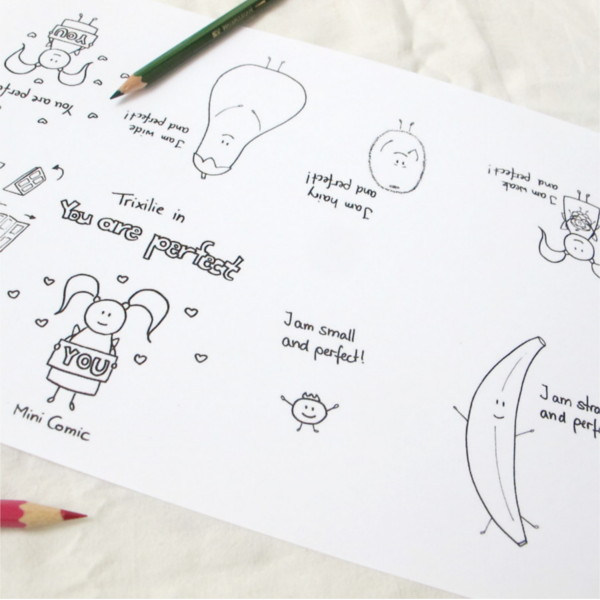 YOU
You are perfe
I am wide
and perfect!
I am hairy
and perfect!
I am weak
and perfect!
Trixilie in
You are perfect
YOU
Mini Comic
I am small
and perfect!
I am stra
and perfe